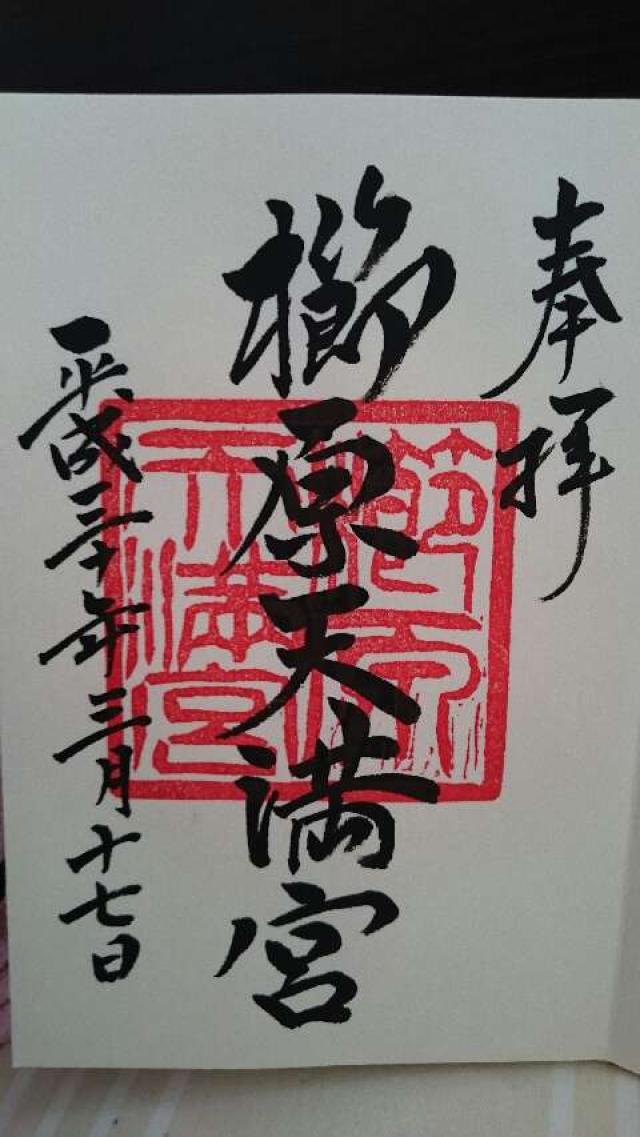 奉拝
櫛原天満宮
平成三十年三月十七日
節原
天満宮